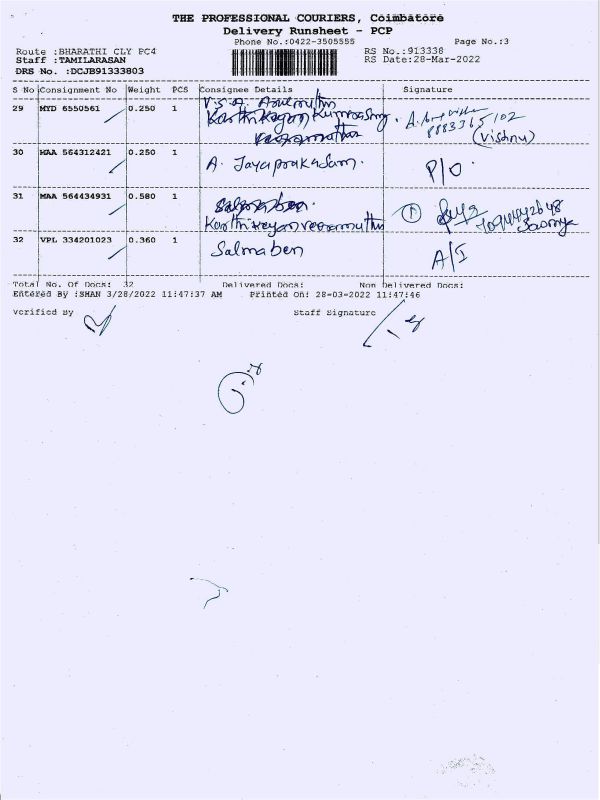 THE PROFESSIONAL COURIERS, Coimbatore
Delivery Runsheet - PCP
Phone No.:0422-3505555 Page No.:3
Route :BHARATHI CLY PC4 RS No.:913338
Staff :TAMILARASAN RS Date:28-Mar-2022
DRS No. :DCJB91333803
S No Consignment No Weight PCS Consignee Details Signature
29 MYD 6550561 0.250 1 V.S.A.
(Vishnu)
30 MAA 564312421 0.250 1 A. Jayaprakasam. P/O
31 MAA 564434931 0.580 1 Salmaben.
Karthikeyan veeramuthu 1
32 VPL 334201023 0.360 1 Salmaben A/I
Total No. Of Docs: 32 Delivered Docs: Non Delivered Docs:
Entered By :SHAN 3/28/2022 11:47:37 AM Printed On: 28-03-2022 11:47:46
Verified By Staff Signature